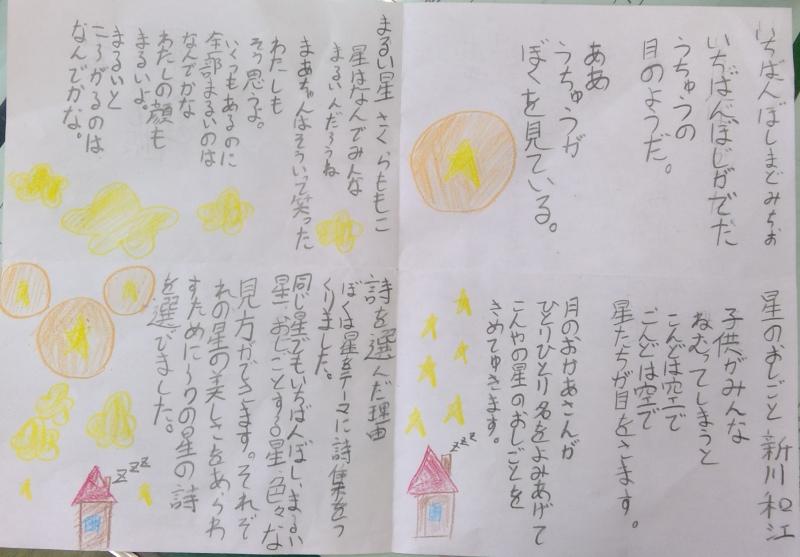 いちばんぼし まどみちお
いちばんぼしがでた
うちゅうの
目のようだ。
ああ
うちゅうが
ぼくを見ている。
まるい星 さくらももこ
星はなんでみんな
まるいんだろうね
まあちゃんはそういって笑った
わたしも
そう思うよ。
いくつもあるのに
全部まるいのは
なんでかな
わたしの顔も
まるいよ。
まるいと
ころがるのは
なんでかな。
星のおしごと 新川和江
子供がみんな
ねむってしまうと
こんどは空で
こんどは空で
星たちが目をさます。
月のおかあさんが
ひとりひとり名をよみあげて
こんやの星のおしごとを
きめてゆきます。
詩を選んだ理由
ぼくは星をテーマに詩集をつ
くりました。
同じ星でもいちばんぼし、まるい
星、おしごとする星、色々な
見方ができます。それぞ
れの星の美しさをあらわ
すために3つの星の詩
を選びました。
zzz
zzz